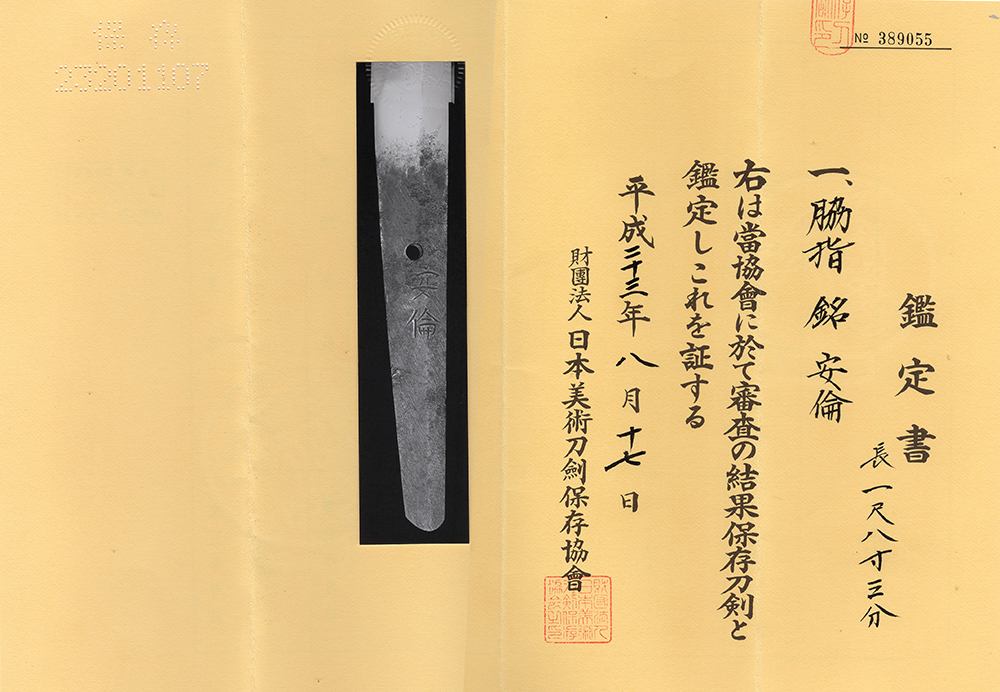 № 389055
鑑定書
一、脇指 銘 安倫
長一尺八寸三分
右は當協會に於て審査の結果保存刀剣と
鑑定しこれを証する
平成二十三年八月十七日
財團法人日本美術刀劍保存協會
安倫
保存
23201107